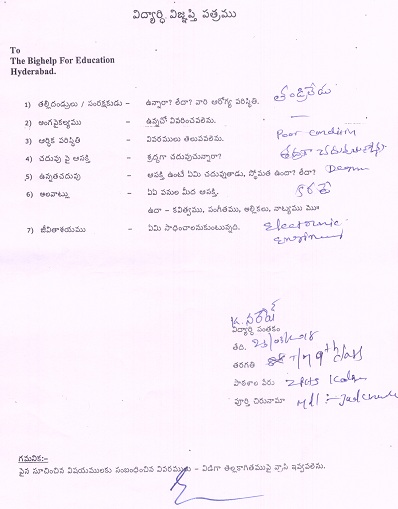 విద్యార్థి విజ్ఞప్తి పత్రము
To
The Bighelp For Education
Hyderabad.
1) తల్లిదండ్రులు / సంరక్షకుడు – ఉన్నారా? లేదా? వారి ఆరోగ్య పరిస్థితి. తండ్రిలేడు
2) అంగవైకల్యము – ఉన్నచో వివరించవలెను. —
3) ఆర్థిక పరిస్థితి – వివరములు తెలుపవలెను. Poor condition
4) చదువు పై ఆసక్తి – శ్రద్ధగా చదువుచున్నారా?
5) ఉన్నతచదువు – ఆసక్తి ఉంటే ఏమి చదువుతాడు, స్తోమత ఉందా? లేదా? Degree
6) అలవాట్లు – ఏఏ పనుల మీద ఆసక్తి. కరాటే
ఉదా – కవిత్వము, సంగీతము, అల్లికలు, నాట్యము ము॥
7) జీవితాశయము – ఏమి సాధించాలనుకుంటున్నది. Electronic
Engineer
విద్యార్థి సంతకం
తేది. 23/03/2018
తరగతి 9th class
పాఠశాల పేరు ZPHS
పూర్తి చిరునామా Mdl :-
గమనిక:-
పైన సూచించిన విషయములకు సంబంధించిన వివరములు – విడిగా తెల్లకాగితముపై వ్రాసి ఇవ్వవలెను.